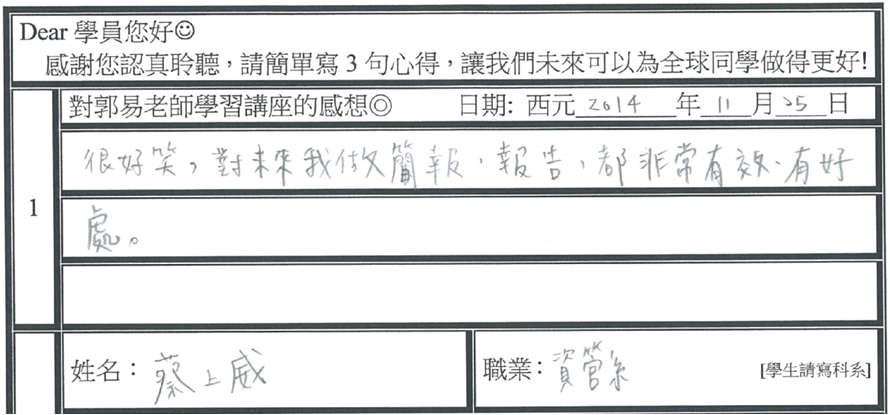 Dear 學員您好☺
感謝您認真聆聽，請簡單寫 3 句心得，讓我們未來可以為全球同學做得更好!
1
對郭易老師學習講座的感想◎ 日期: 西元 2014 年 11 月 25 日
很好笑，對未來我做簡報、報告，都非常有效、有好
處。
姓名：蔡上威 職業：資管系 [學生請寫科系]